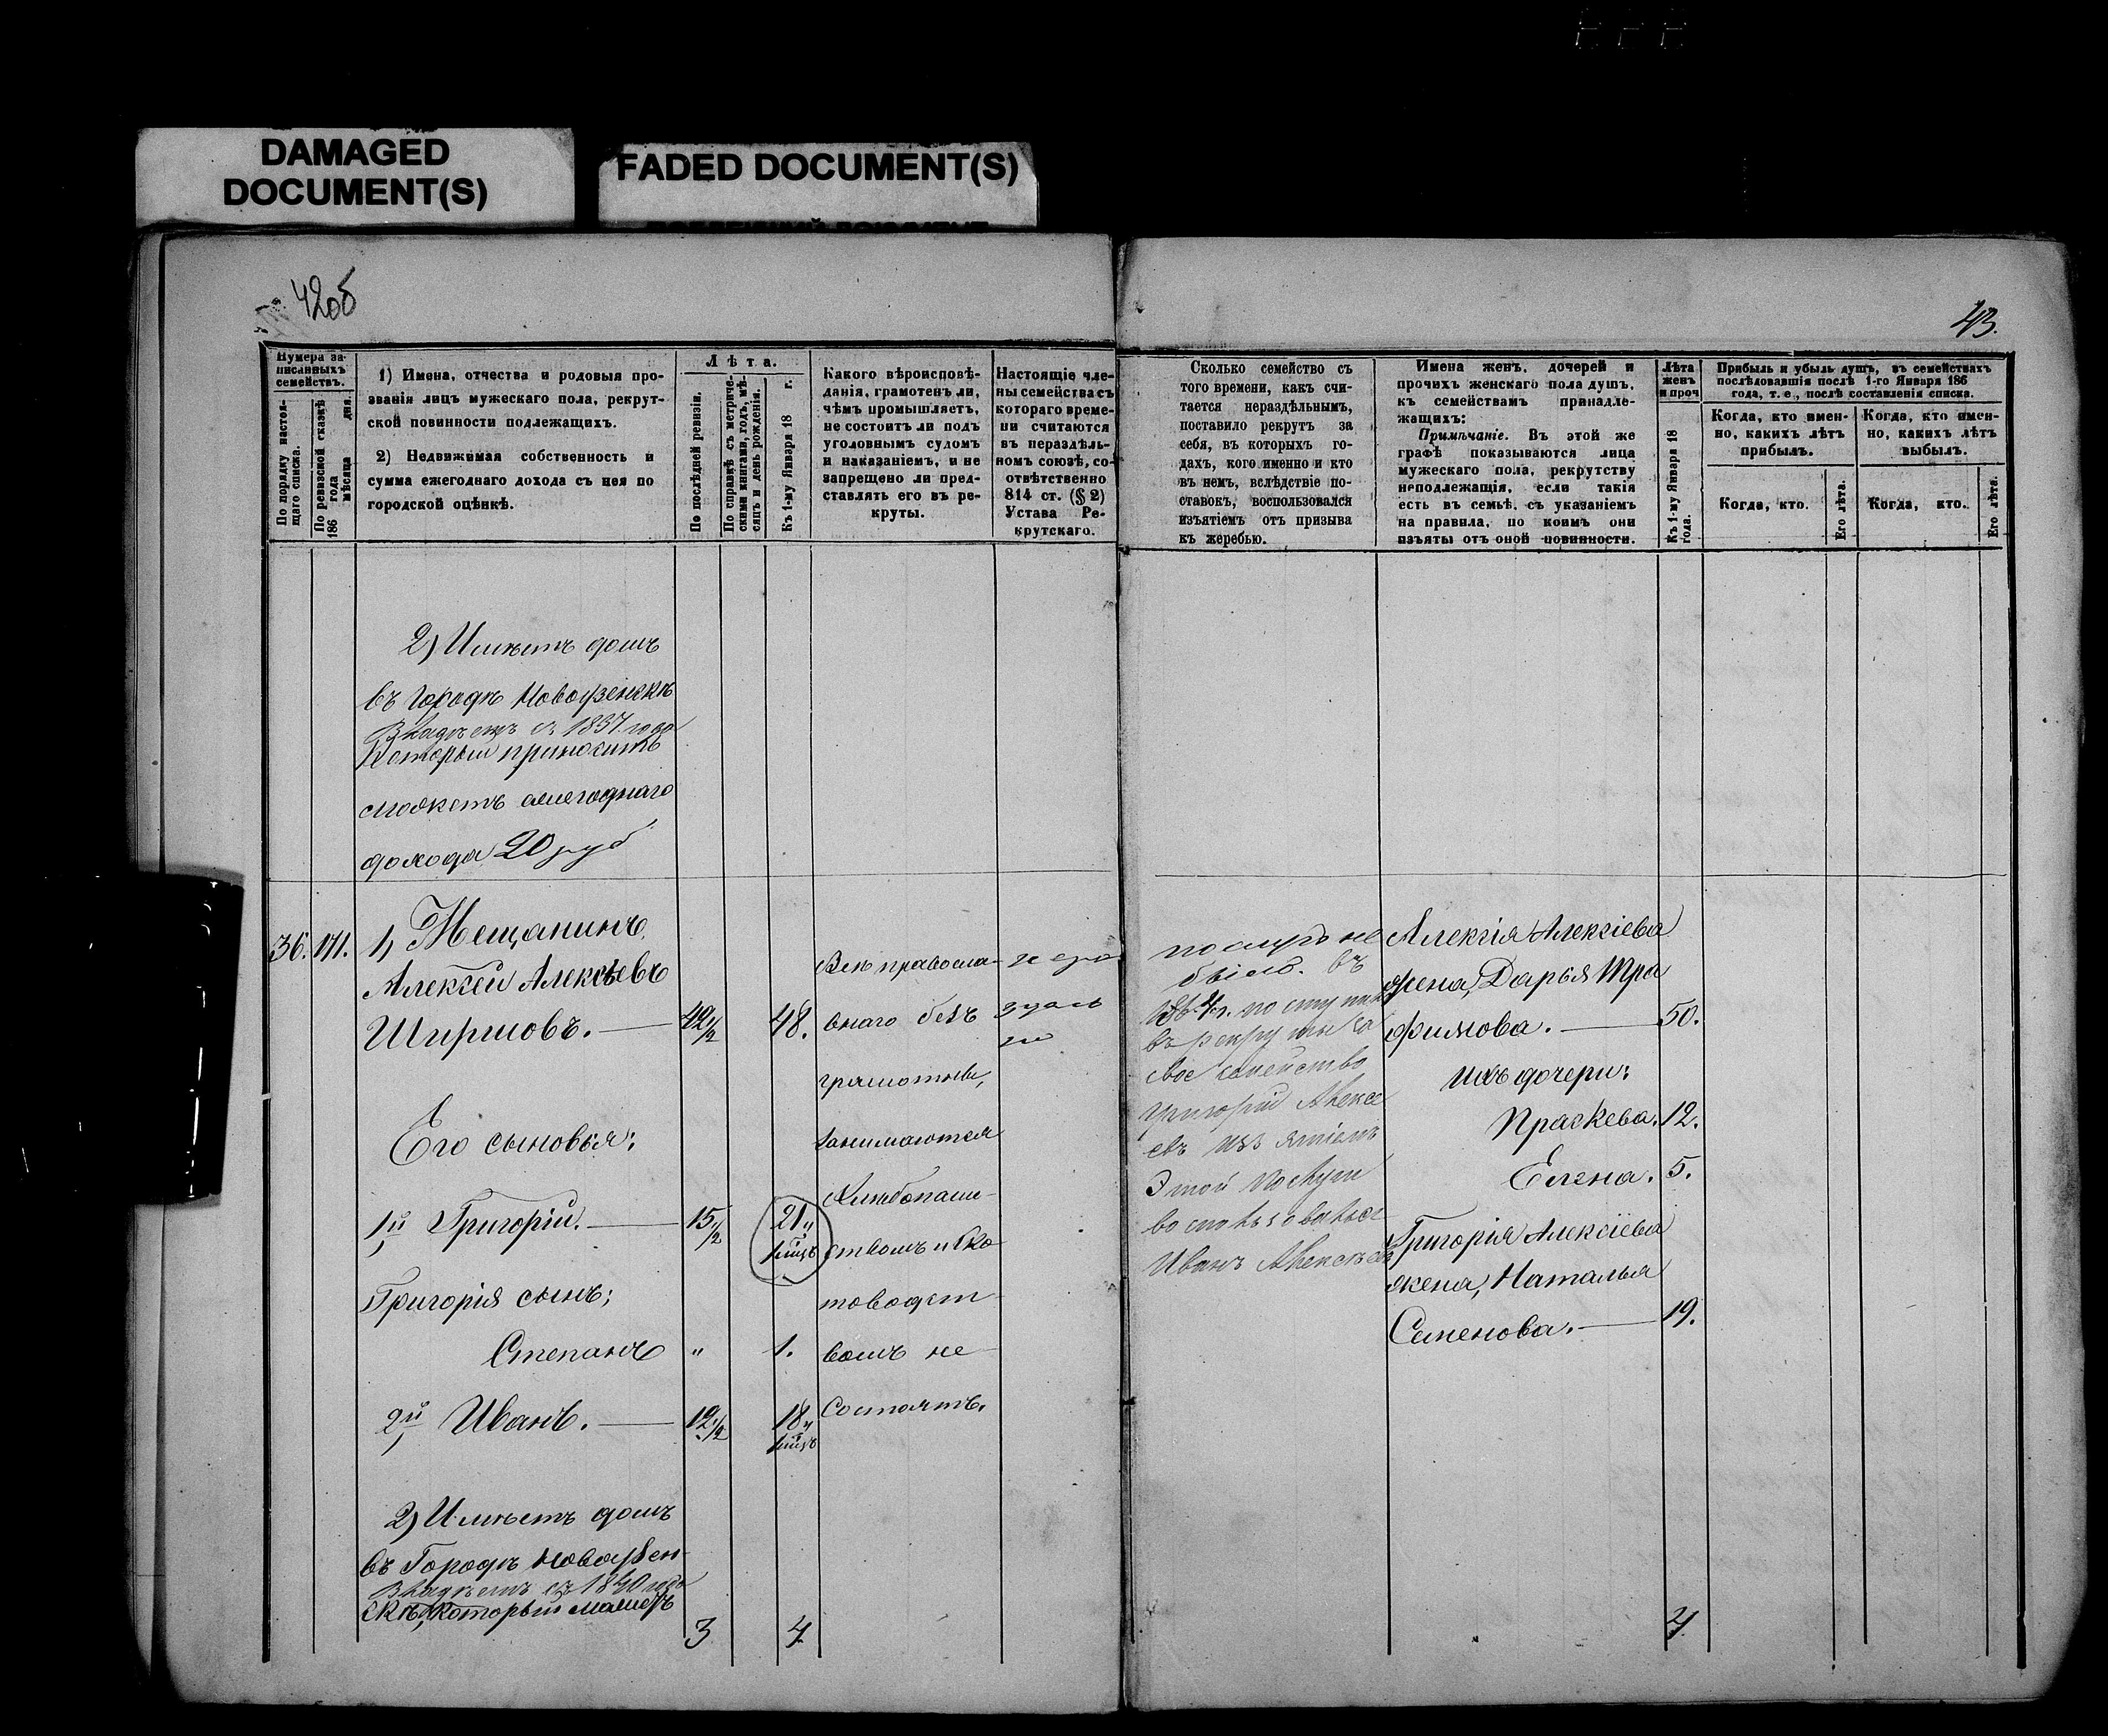 DAMAGED
DOCUMENT(S)
FADED DOCUMENT(S)
42об
43.
Нумера за-
писанныхъ
семействъ.
По порядку настоя-
щаго списка.
По ревизской сказкѣ
186 года
мѣсяца дня.
1) Имена, отчества и родовыя про-
званія лицъ мужескаго пола, рекрут-
ской повинности подлежащихъ.
2) Недвижимая собственность и
сумма ежегоднаго дохода съ нея по
городской оцѣнкѣ.
Лѣта.
По послѣдней ревизіи.
По справкѣ съ метриче-
скими книгами, годъ, мѣ-
сяцъ и день рожденія.
Къ 1-му Января 18 г.
Какого вѣроисповѣ-
данія, грамотенъ ли,
чѣмъ промышляетъ,
не состоитъ ли подъ
уголовнымъ судомъ
и наказаніемъ, и не
запрещено ли пред-
ставлять его въ ре-
круты.
Настоящіе чле-
ны семейства съ
котораго време-
ни считаются
въ нераздѣль-
номъ союзѣ, со-
отвѣтственно
814 ст. (§ 2)
Устава Ре-
крутскаго.
Сколько семейство съ
того времени, какъ счи-
тается нераздѣльнымъ,
поставило рекрутъ за
себя, въ которыхъ го-
дахъ, кого именно и кто
въ немъ, вслѣдствіе по-
ставокъ, воспользовался
изъятіемъ отъ призыва
къ жеребью.
Имена женъ, дочерей и
прочихъ женскаго пола душъ,
къ семействамъ принадле-
жащихъ:
Примѣчаніе. Въ этой же
графѣ показываются лица
мужескаго пола, рекрутству
неподлежащія, если такія
есть въ семьѣ, съ указаніемъ
на правила, по коимъ они
изъяты отъ оной повинности.
Лѣта
женъ
и проч
Къ 1-му Января 18
года.
Прибыль и убыль душъ, въ семействахъ
послѣдовавшія послѣ 1-го Января 186
года, т. е., послѣ составленія списка.
Когда, кто имен-
но, какихъ лѣтъ
прибылъ.
Когда, кто имен-
но, какихъ лѣтъ
выбылъ.
Когда, кто.
Его лѣта.
Когда, кто.
Его лѣта.
2) Имѣетъ домъ
въ Городѣ Новоузенскѣ
Владѣетъ съ 1837 года
Который приносить
можетъ ежегоднаго
дохода 20 руб
36. 171. 1, Мещанинъ
Алексѣй Алексѣевъ
Ширшовъ. 42 1/2 48.
Его сыновья:
1й Григорій. 15 1/2 21 и
1/2 мцъ
Григорія сынъ;
Степанъ " 1.
2й Иванъ. 12 1/2 18 и
1/2 мцъ
2) Имѣетъ домъ
въ Городѣ Новоузен-
Владѣетъ съ 1840 года
скѣ, который можетъ
3 4.
Всѣ правосла-
внаго безъ
грамотны,
занимаются
Хлѣбопаше-
ствомъ и Ско-
товодст-
вомъ не
состоятъ.
не
быіло. въ
поступилъ
въ рекруты за
свое семейство
Григорій Алексе
евъ изъятіемъ
Этой
воспользовался
Иванъ Алексѣевъ
Алексія Алексіева
жена, Дарья Тро
фимова. 50.
ихъ дочери:
Праскева. 12.
Елена. 5.
Григорія Алексіева
жена, Наталья
Семенова. 19.
4